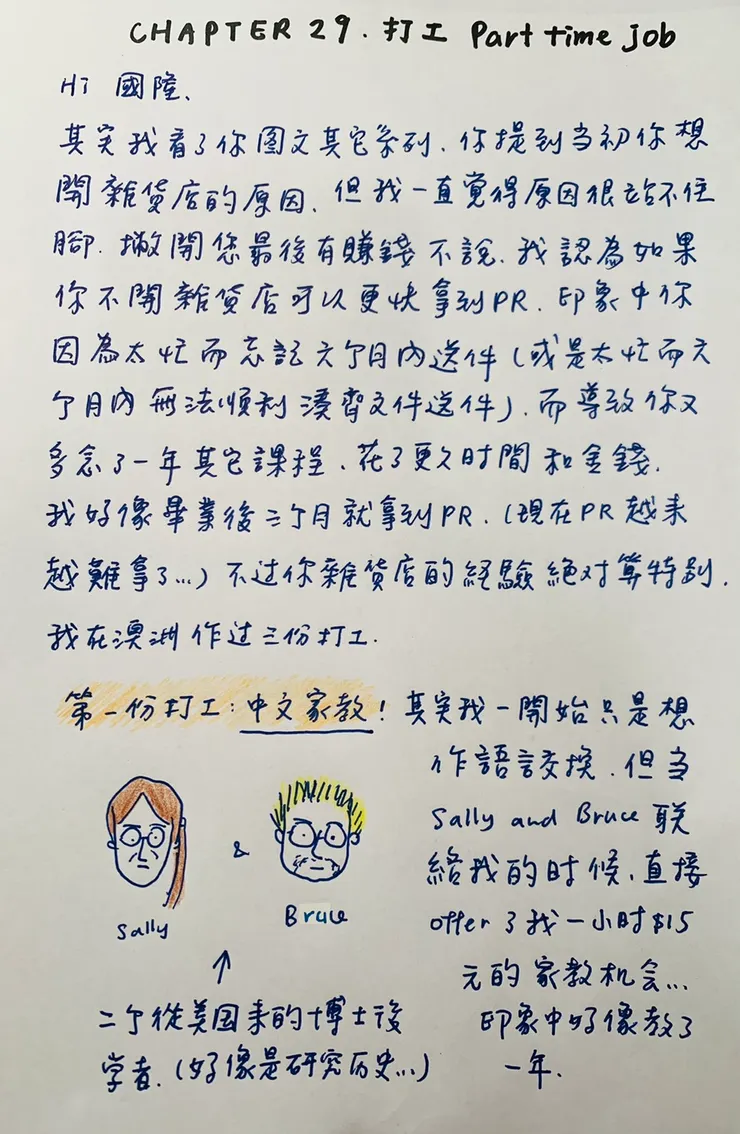 CHAPTER 29. 打工 Part time job
Hi 國隆、
其实我看了你图文其它系列、你提到当初你想
開雜貨店的原因、但我一直覺得原因很站不住
腳. 撇開您最後有賺錢不說、我認為如果
你不開雜貨店可以更快拿到PR、印象中你
因為太忙而忘記六个月內送件(或是太忙而六
个月內無法順利湊齊文件送件)、而導致你又
多念了一年其它課程、花了更久时間和金錢.
我好像畢業後三个月就拿到PR、(現在PR越来
越難拿了...) 不过你雜貨店的経驗絕对算特別.
我在澳洲作过三份打工.
第一份打工: 中文家教! 其実我一開始只是想
作語言交換、但当
Sally and Bruce 联
給我的时候、直接
offer了我一小时$15
元的家教机会...
印象中好像教了
一年.
&
Sally
Bruce
二个從美国来的博士後
学者. (好像是研究历史...)